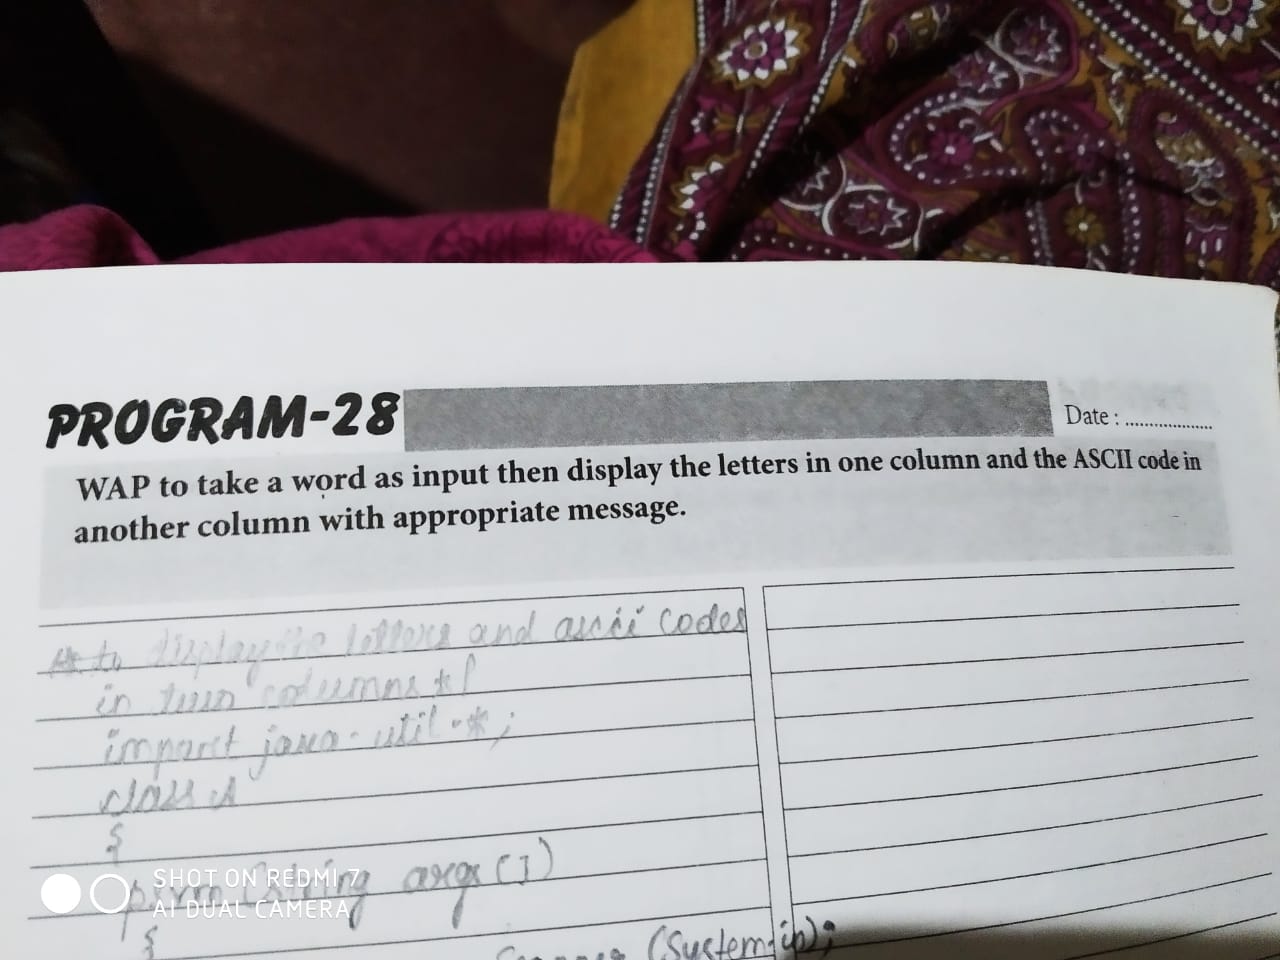 PROGRAM-28
Date : ...................
WAP to take a word as input then display the letters in one column and the ASCII code in
another column with appropriate message.
to display the letters and ascii codes
in two columns */
import java.util.*;
class A
{
psvm (String args [])
{
Scanner (System.in);
SHOT ON REDMI 7
AI DUAL CAMERA